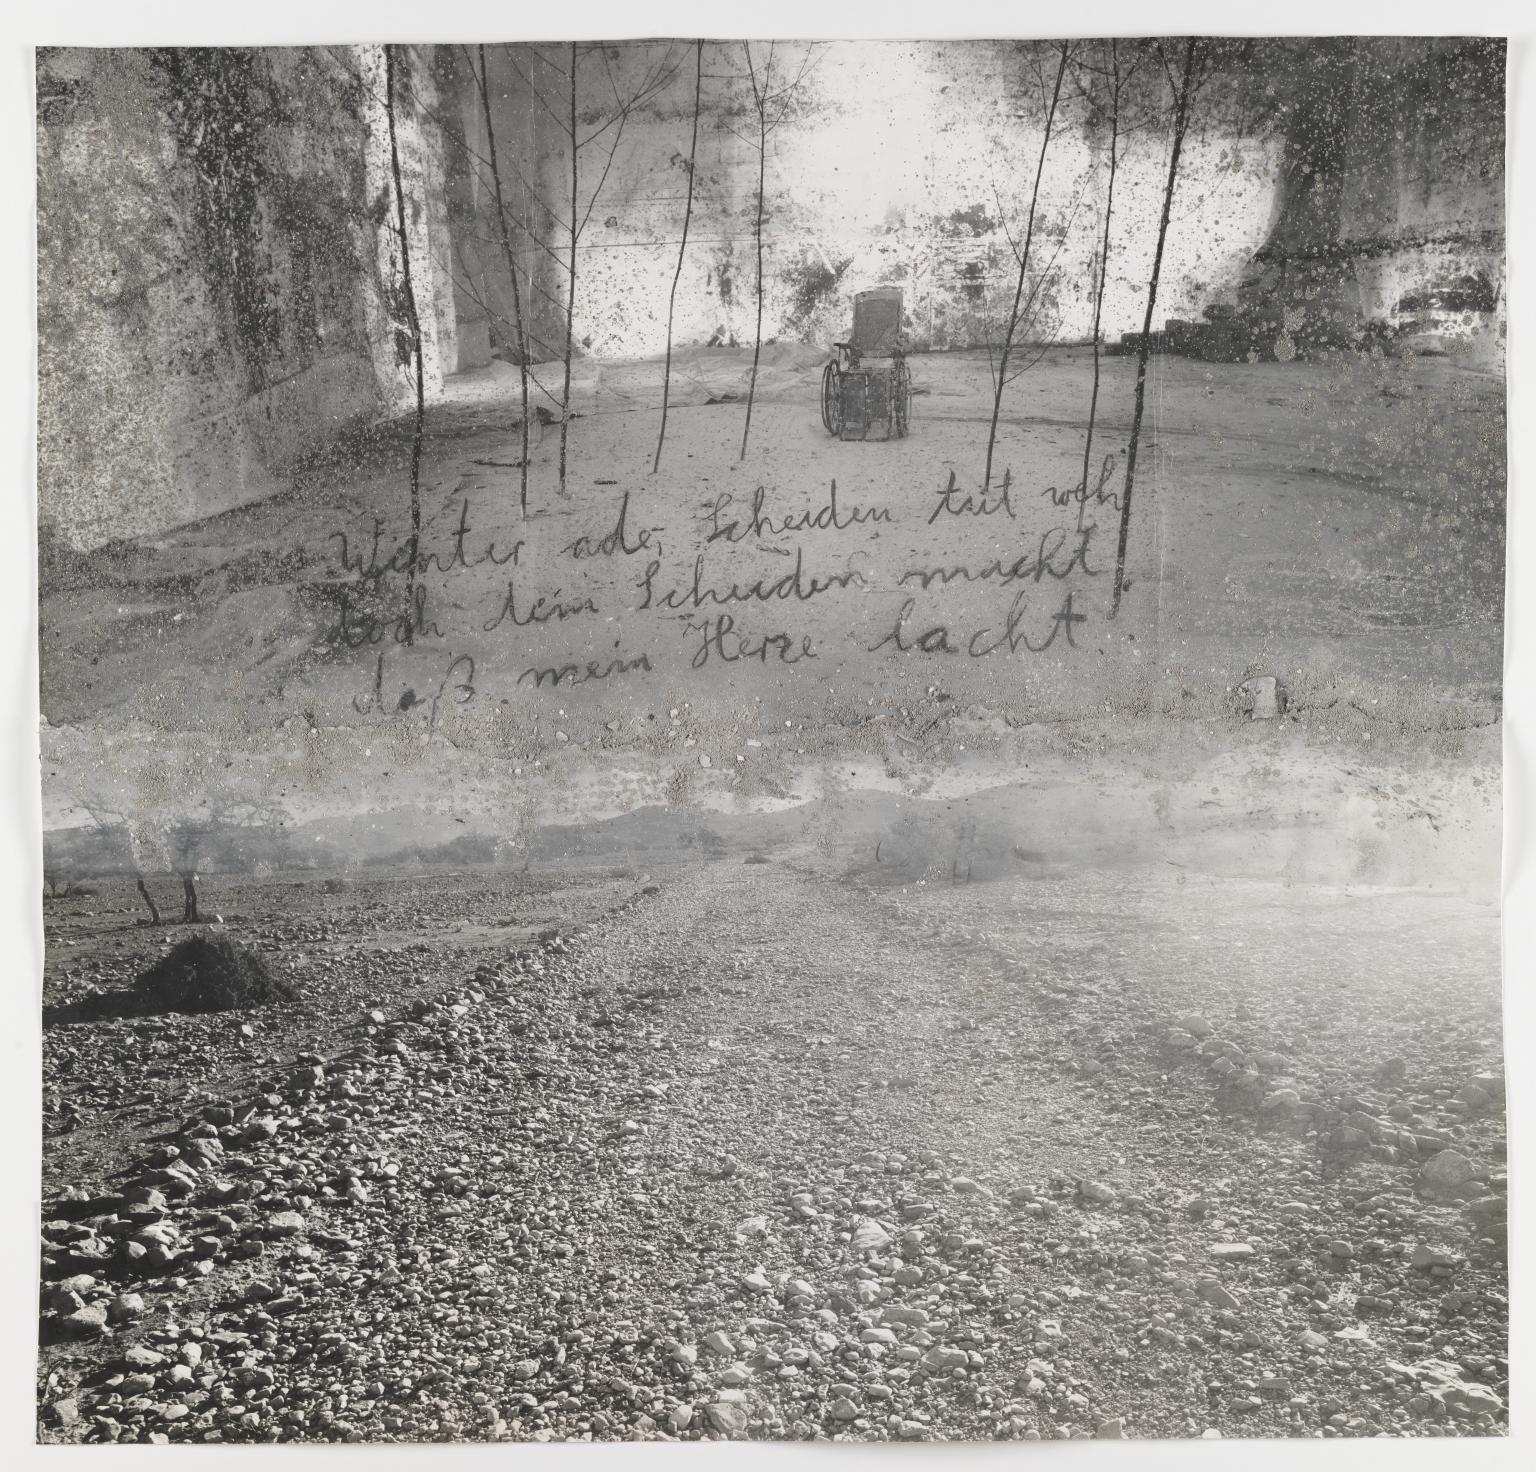 Winter ade, Scheiden tut weh
doch dein Scheiden macht
daß mein Herze lacht